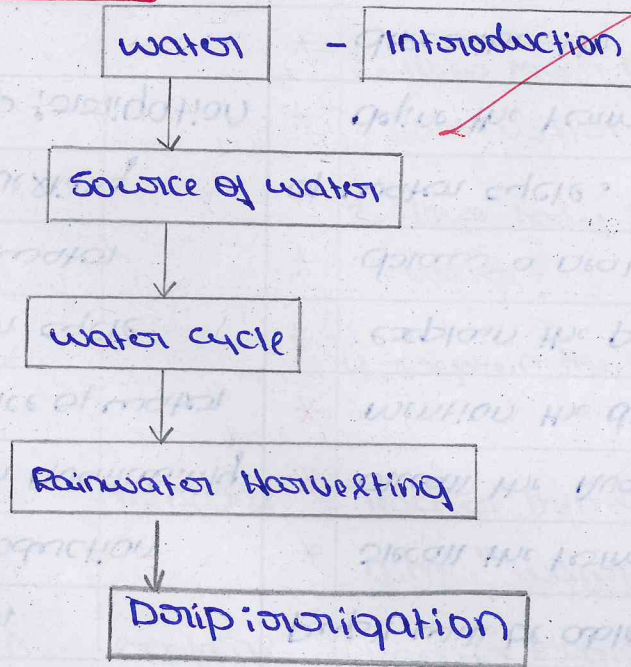 water - Introduction
Source of water
water cycle
Rainwater Harvesting
Drip irrigation